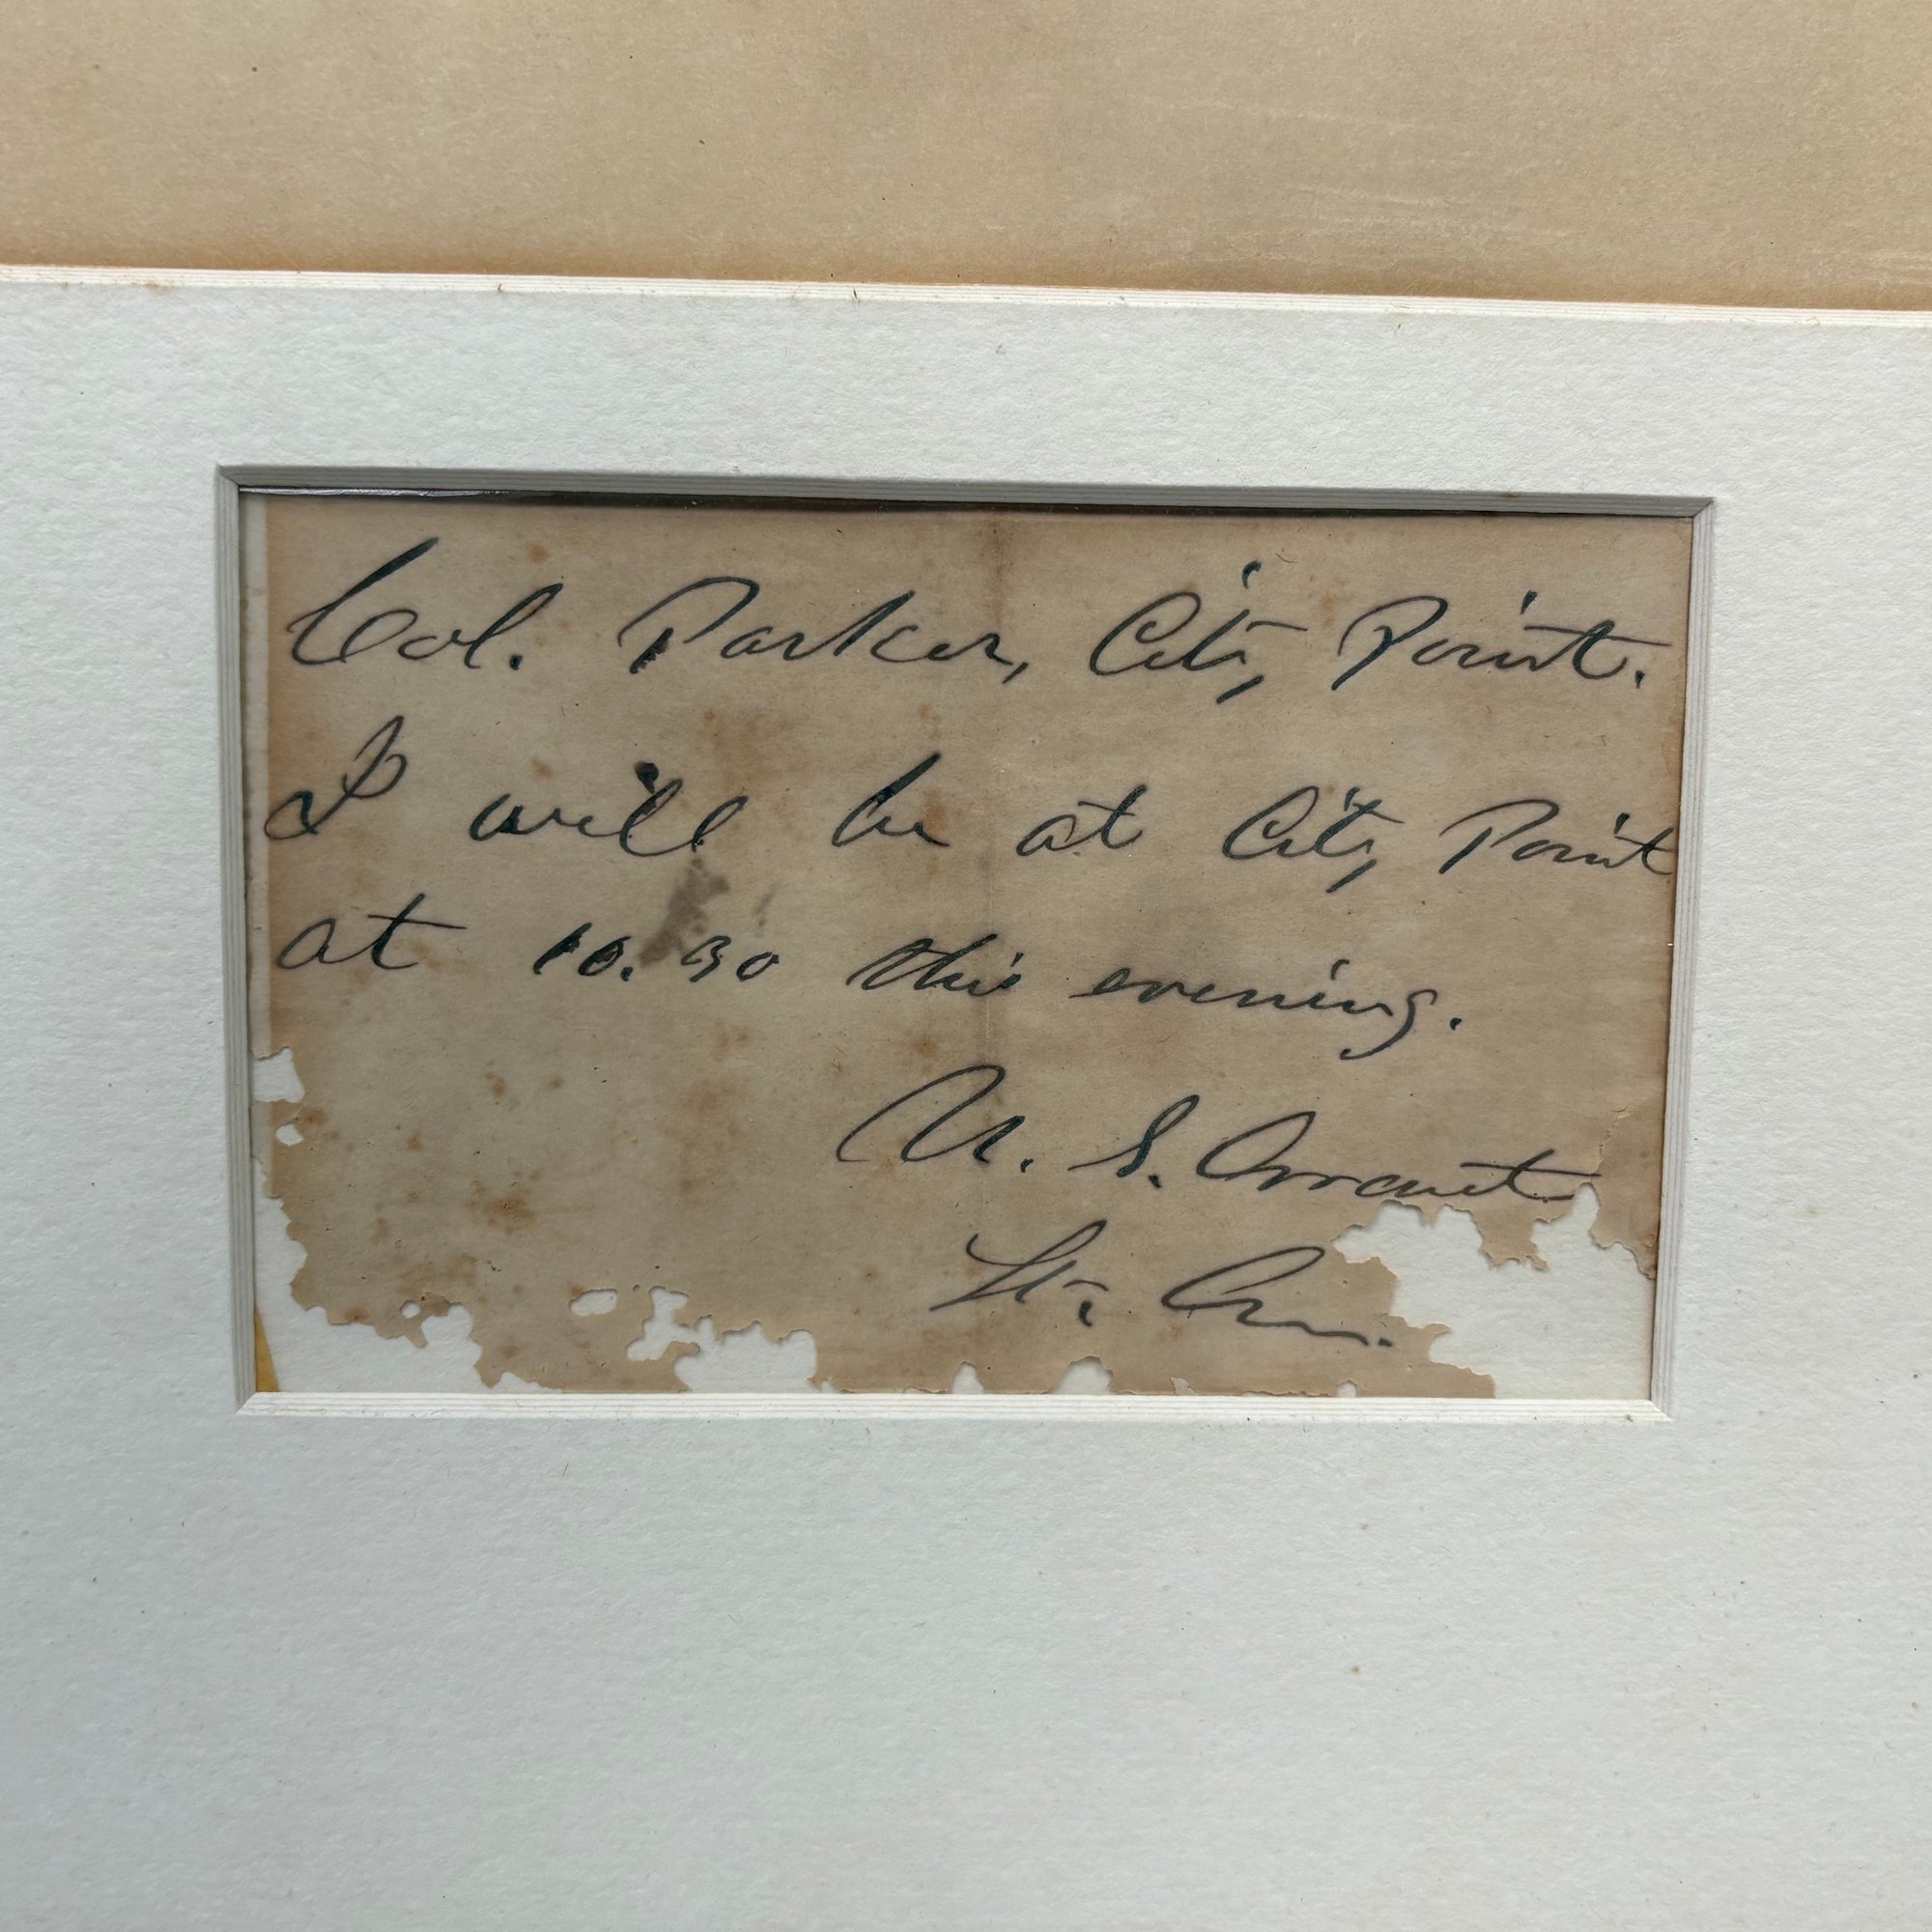 Col. Parker, City Point.
I will be at City Point
at 10.30 this evening.
U. S. Grant
Lt. Gn.